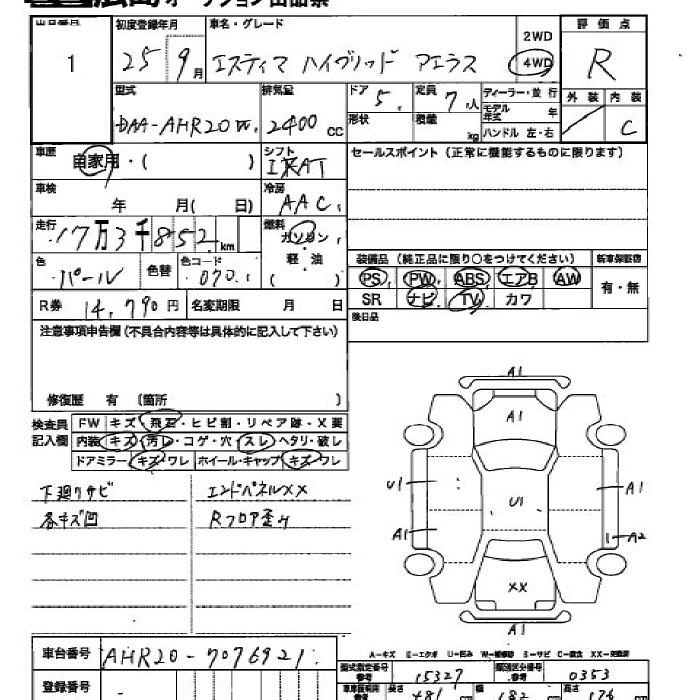 広島オークション出品票
出品番号 初度登録年月 車名・グレード 2WD 評価点
1 25 9月 エスティマ ハイブリッド アエラス 4WD R
型式 排気量 ドア 5 定員 7人 ディーラー・並行 外装 内装
DAA-AHR20W 2400cc 形状 積載 kg モデル年式 年 C
ハンドル 左・右
車歴 自家用・( ) シフト IRAT セールスポイント(正常に機能するものに限ります)
車検 年 月( 日) 冷房 AAC
走行 17万3千852km 燃料 ガソリン
軽・油
( )
装備品(純正品に限り○をつけてください) 新車保証書
色 パール 色替 色コード 070 PS PW ABS エアB AW 有・無
R券 14,790円 名変期限 月 日 SR ナビ TV カワ
後日品
注意事項申告欄(不具合内容等は具体的に記入して下さい)
修復歴 有 (箇所 )
検査員記入欄 FW キズ・飛石・ヒビ割・リペア跡・X要
内装 キズ・汚レ・コゲ・穴・スレ・ヘタリ・破レ
ドアミラー キズ・ワレ ホイール・キャップ キズ・ワレ
下廻りサビ エンドパネルXX
各キズ凹 Rフロア歪み
A1
A1
U1 U1 A1
A1 A2
XX
A1
A-キズ E-エクボ U-凹み W-補修跡 S-サビ C-腐食 XX-交換済
車台番号 AHR20-7076921
型式指定番号 参考 15327 類別区分番号 参考 0353
登録番号 -
長さ 481 幅 182 高さ 176